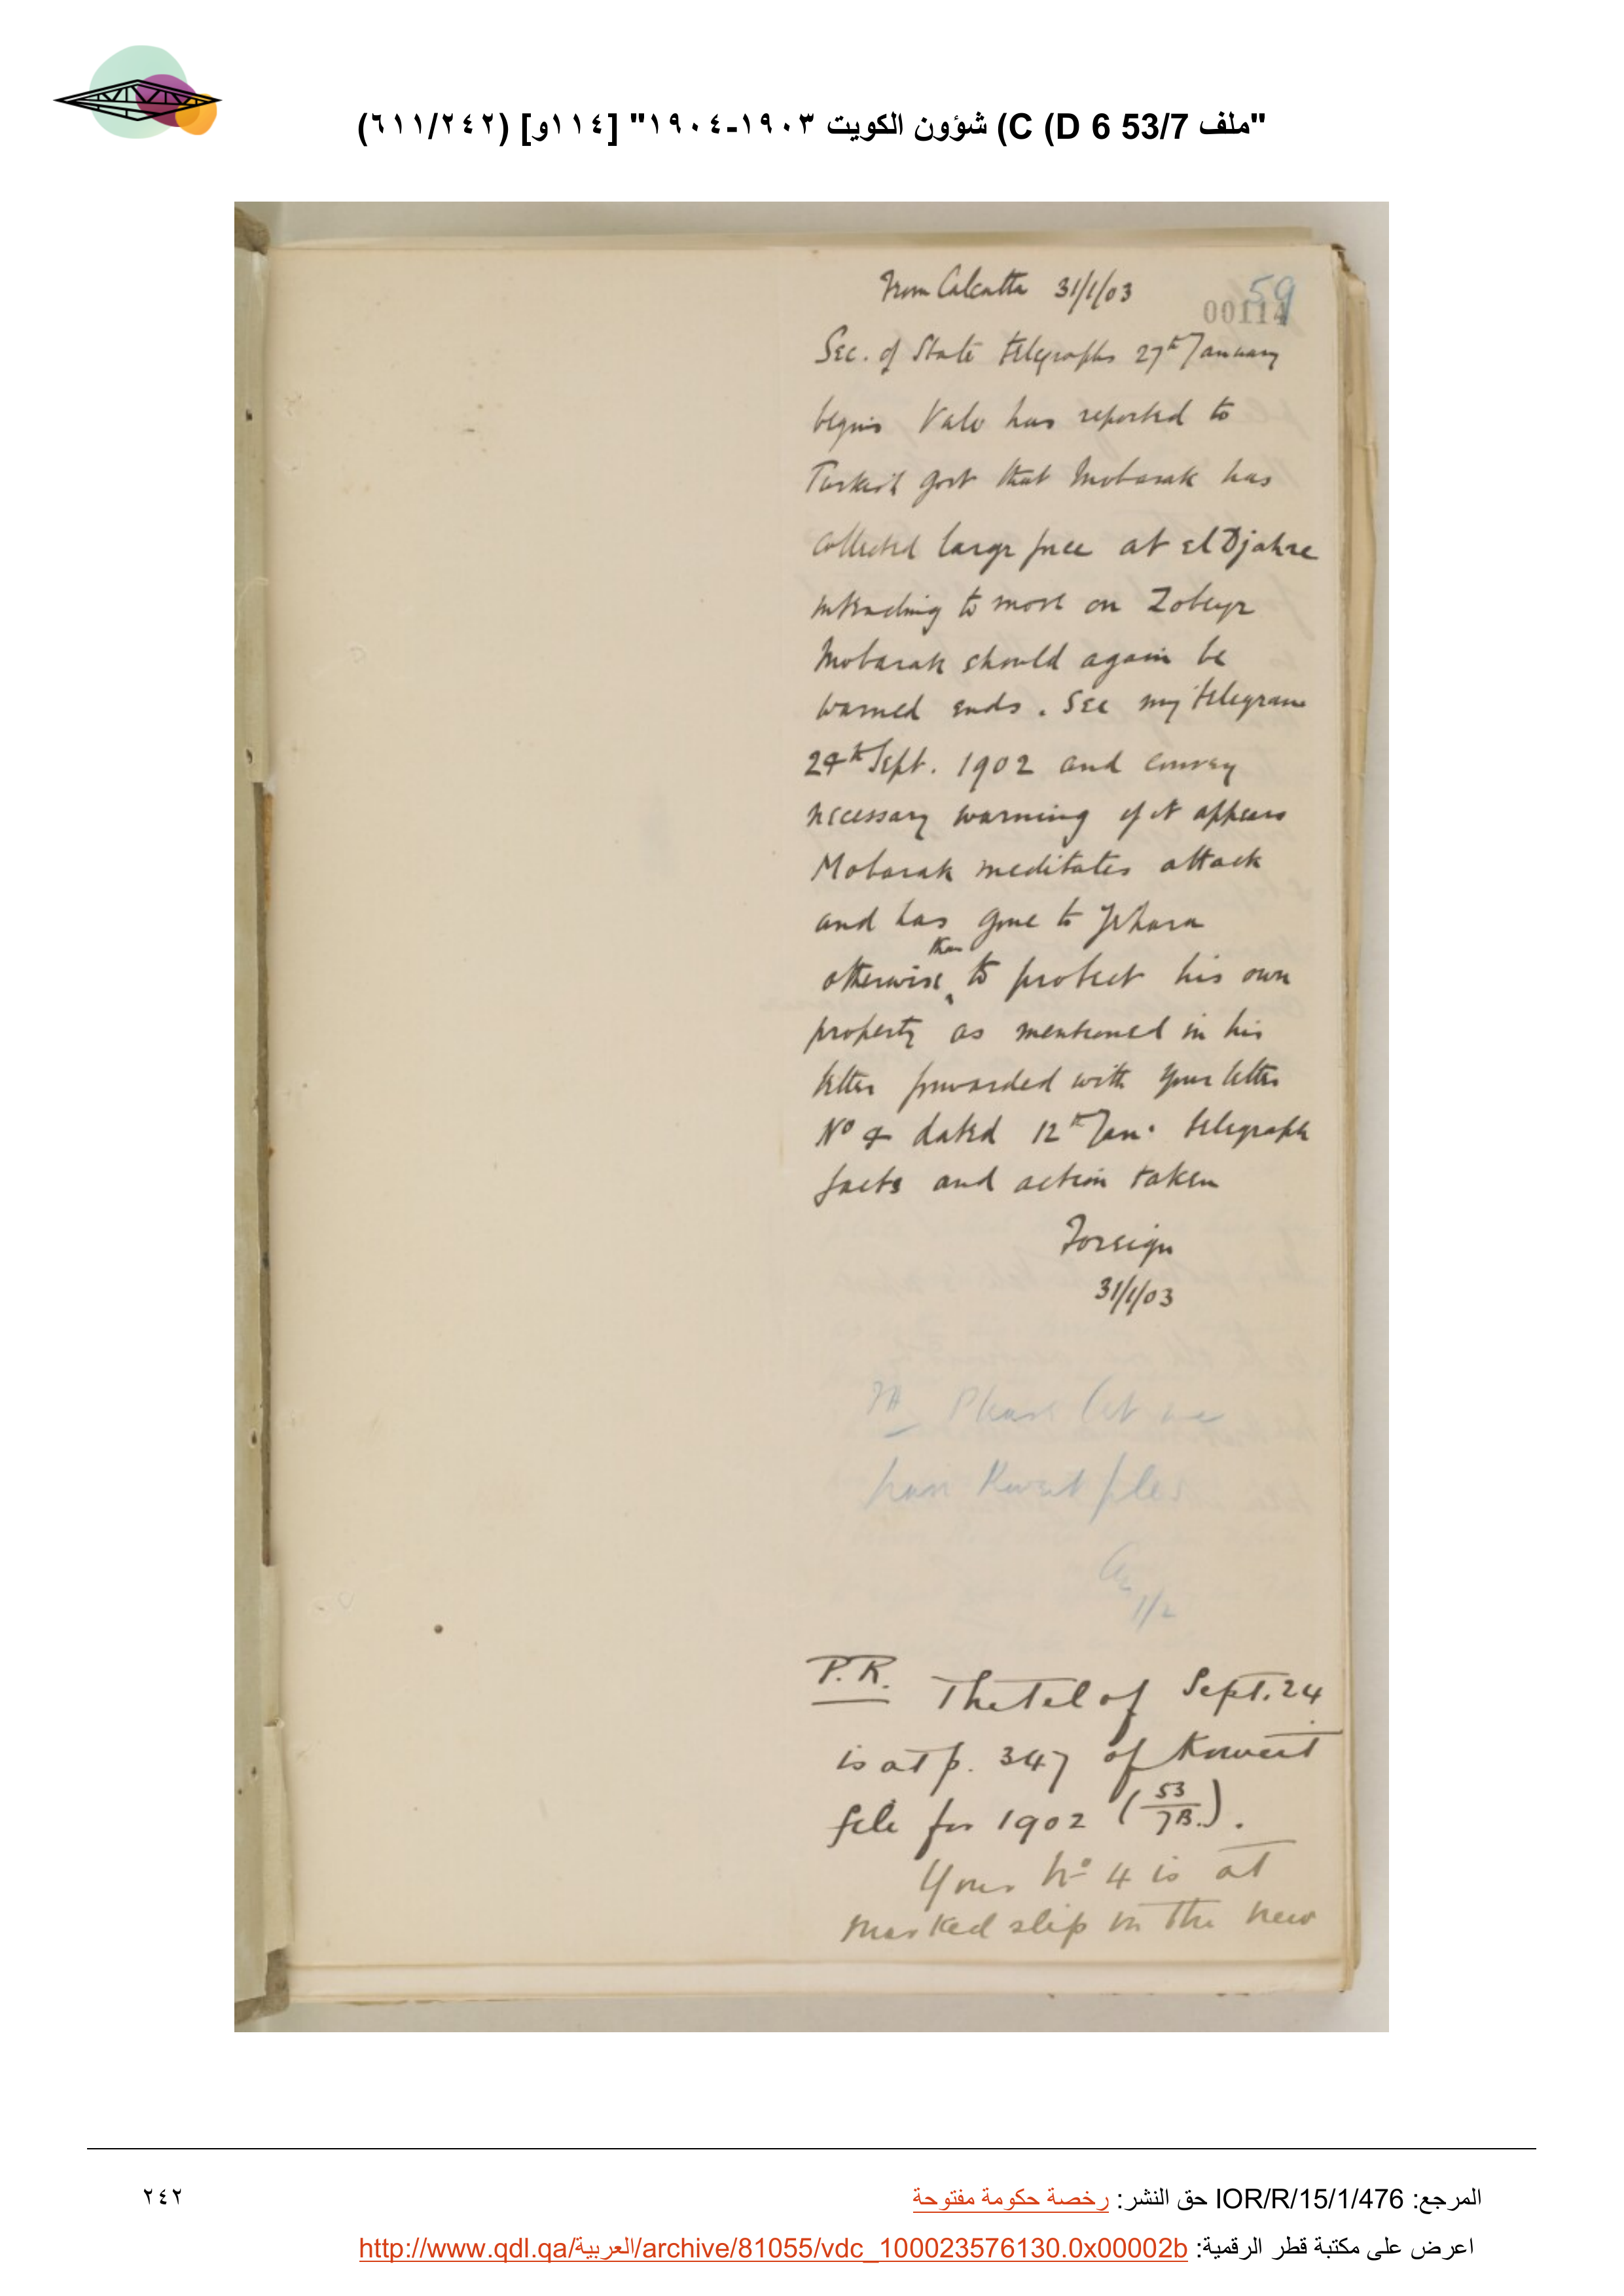 "ملف 53/7 C (D 6) شؤون الكويت ١٩٠٣-١٩٠٤" [١١٤و] (٦١١/٢٤٢)
From Calcutta 31/1/03
59
00114
Sec. of State telegraphs 27th January
begins Vali has reported to
Turkish Govt that Mobarak has
collected large force at el Djahre
intending to move on Zobeyr
Mobarak should again be
warned ends. See my telegram
24th Sept. 1902 and convey
necessary warning if it appears
Mobarak meditates attack
and has gone to Jehara
otherwise than to protect his own
property as mentioned in his
letter forwarded with your letter
No 4 dated 12th Jan. telegraph
facts and action taken
Foreign
31/1/03
Please let me
have Kuwait files
1/2
P.R. The Tel of Sept. 24
is at p. 347 of Koweit
file for 1902 (53/7B.).
Your No 4 is at
marked slip in the new
المرجع: IOR/R/15/1/476 حق النشر: رخصة حكومة مفتوحة
٢٤٢
اعرض على مكتبة قطر الرقمية: http://www.qdl.qa/العربية/archive/81055/vdc_100023576130.0x00002b